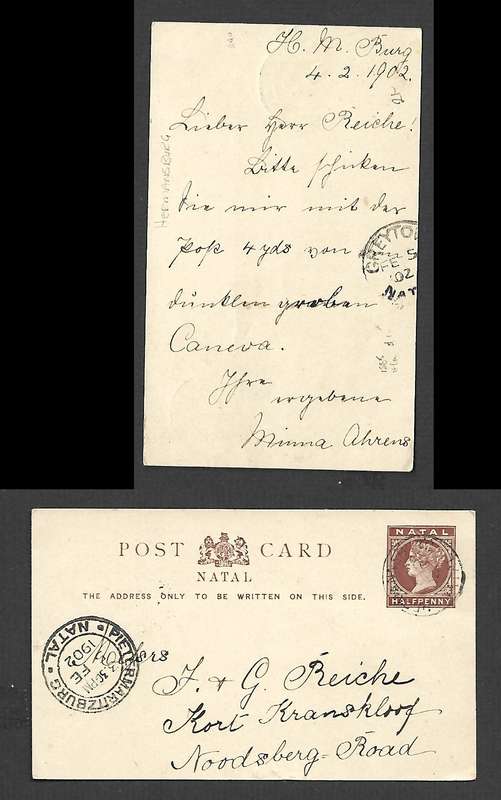 H. M. Burg
4.2.1902.
Lieber Herr Reiche!
Bitte schicken
Sie mir mit der
Post 4 yds von
dunklen groben
Caneva.
Ihre
ergebene
Minna Ahrens
HERMANSBURG
GREYTO
FE 5
02
NAT
POST CARD
NATAL
THE ADDRESS ONLY TO BE WRITTEN ON THIS SIDE.
NATAL
HALFPENNY
PIETERMARITZBURG
NATAL
FE
1902
J. & G. Reiche
Kort Kranskloof
Noodsberg-Road